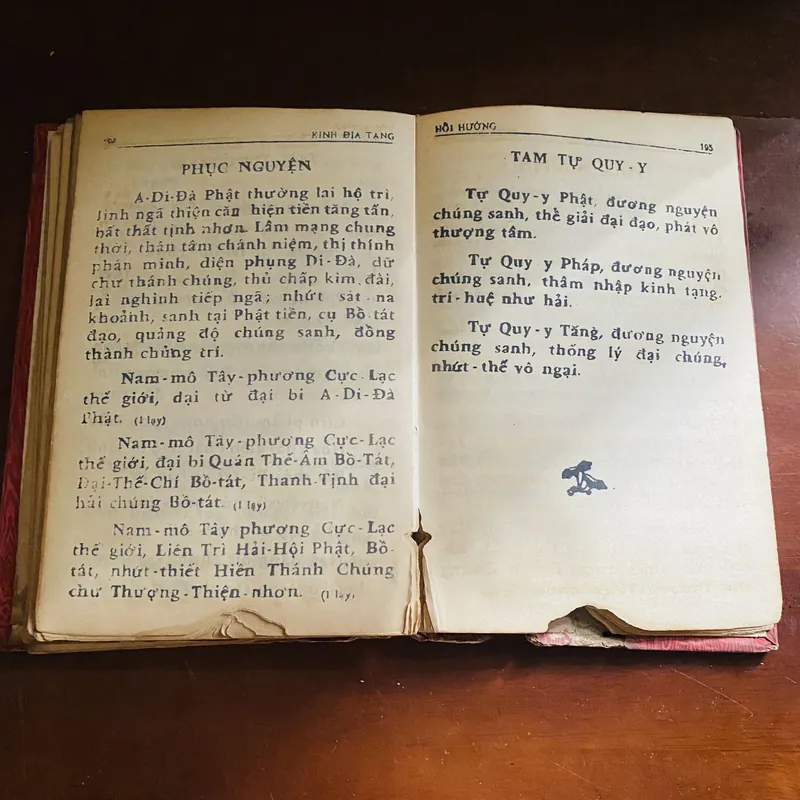 KINH ĐỊA TẠNG
PHỤC NGUYỆN
A-Di-Đà Phật thường lai hộ trì,
linh ngã thiện căn hiện tiền tăng tấn,
bất thất tịnh nhơn. Lâm mạng chung
thời, thân tâm chánh niệm, thị thính
phân minh, diện phụng Di-Đà, dữ
chư thánh chúng, thủ chấp kim đài,
lai nghinh tiếp ngã; nhứt sát-na
khoảnh, sanh tại Phật tiền, cụ Bồ-tát
đạo, quảng độ chúng sanh, đồng
thành chủng trí.
Nam-mô Tây-phương Cực-Lạc
thế giới, đại từ đại bi A-Di-Đà
Phật. (1 lạy)
Nam-mô Tây-phương Cực-Lạc
thế giới, đại bi Quán Thế-Âm Bồ-Tát,
Đại-Thế-Chí Bồ-tát, Thanh-Tịnh đại
hải chúng Bồ-tát. (1 lạy)
Nam-mô Tây phương Cực-Lạc
thế giới, Liên Trì Hải-Hội Phật, Bồ-
tát, nhứt-thiết Hiền Thánh Chúng
chư Thượng-Thiện-nhơn. (1 lạy)
HỒI HƯỚNG
195
TAM TỰ QUY-Y
Tự Quy-y Phật, đương nguyện
chúng sanh, thể giải đại đạo, phát vô
thượng tâm.
Tự Quy y Pháp, đương nguyện
chúng sanh, thâm nhập kinh tạng,
trí-huệ như hải.
Tự Quy-y Tăng, đương nguyện
chúng sanh, thống lý đại chúng,
nhứt-thế vô ngại.